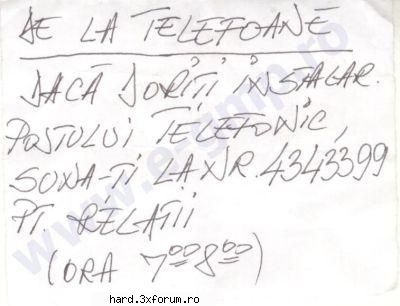 DE LA TELEFOANE
DACĂ DORIȚI INSTALAR.
POSTULUI TELEFONIC,
SUNA-ȚI LA NR. 4343399
PT. RELAȚII
(ORA 7⁰⁰ 8⁰⁰)
www.e-gmp.ro
hard.3xforum.ro